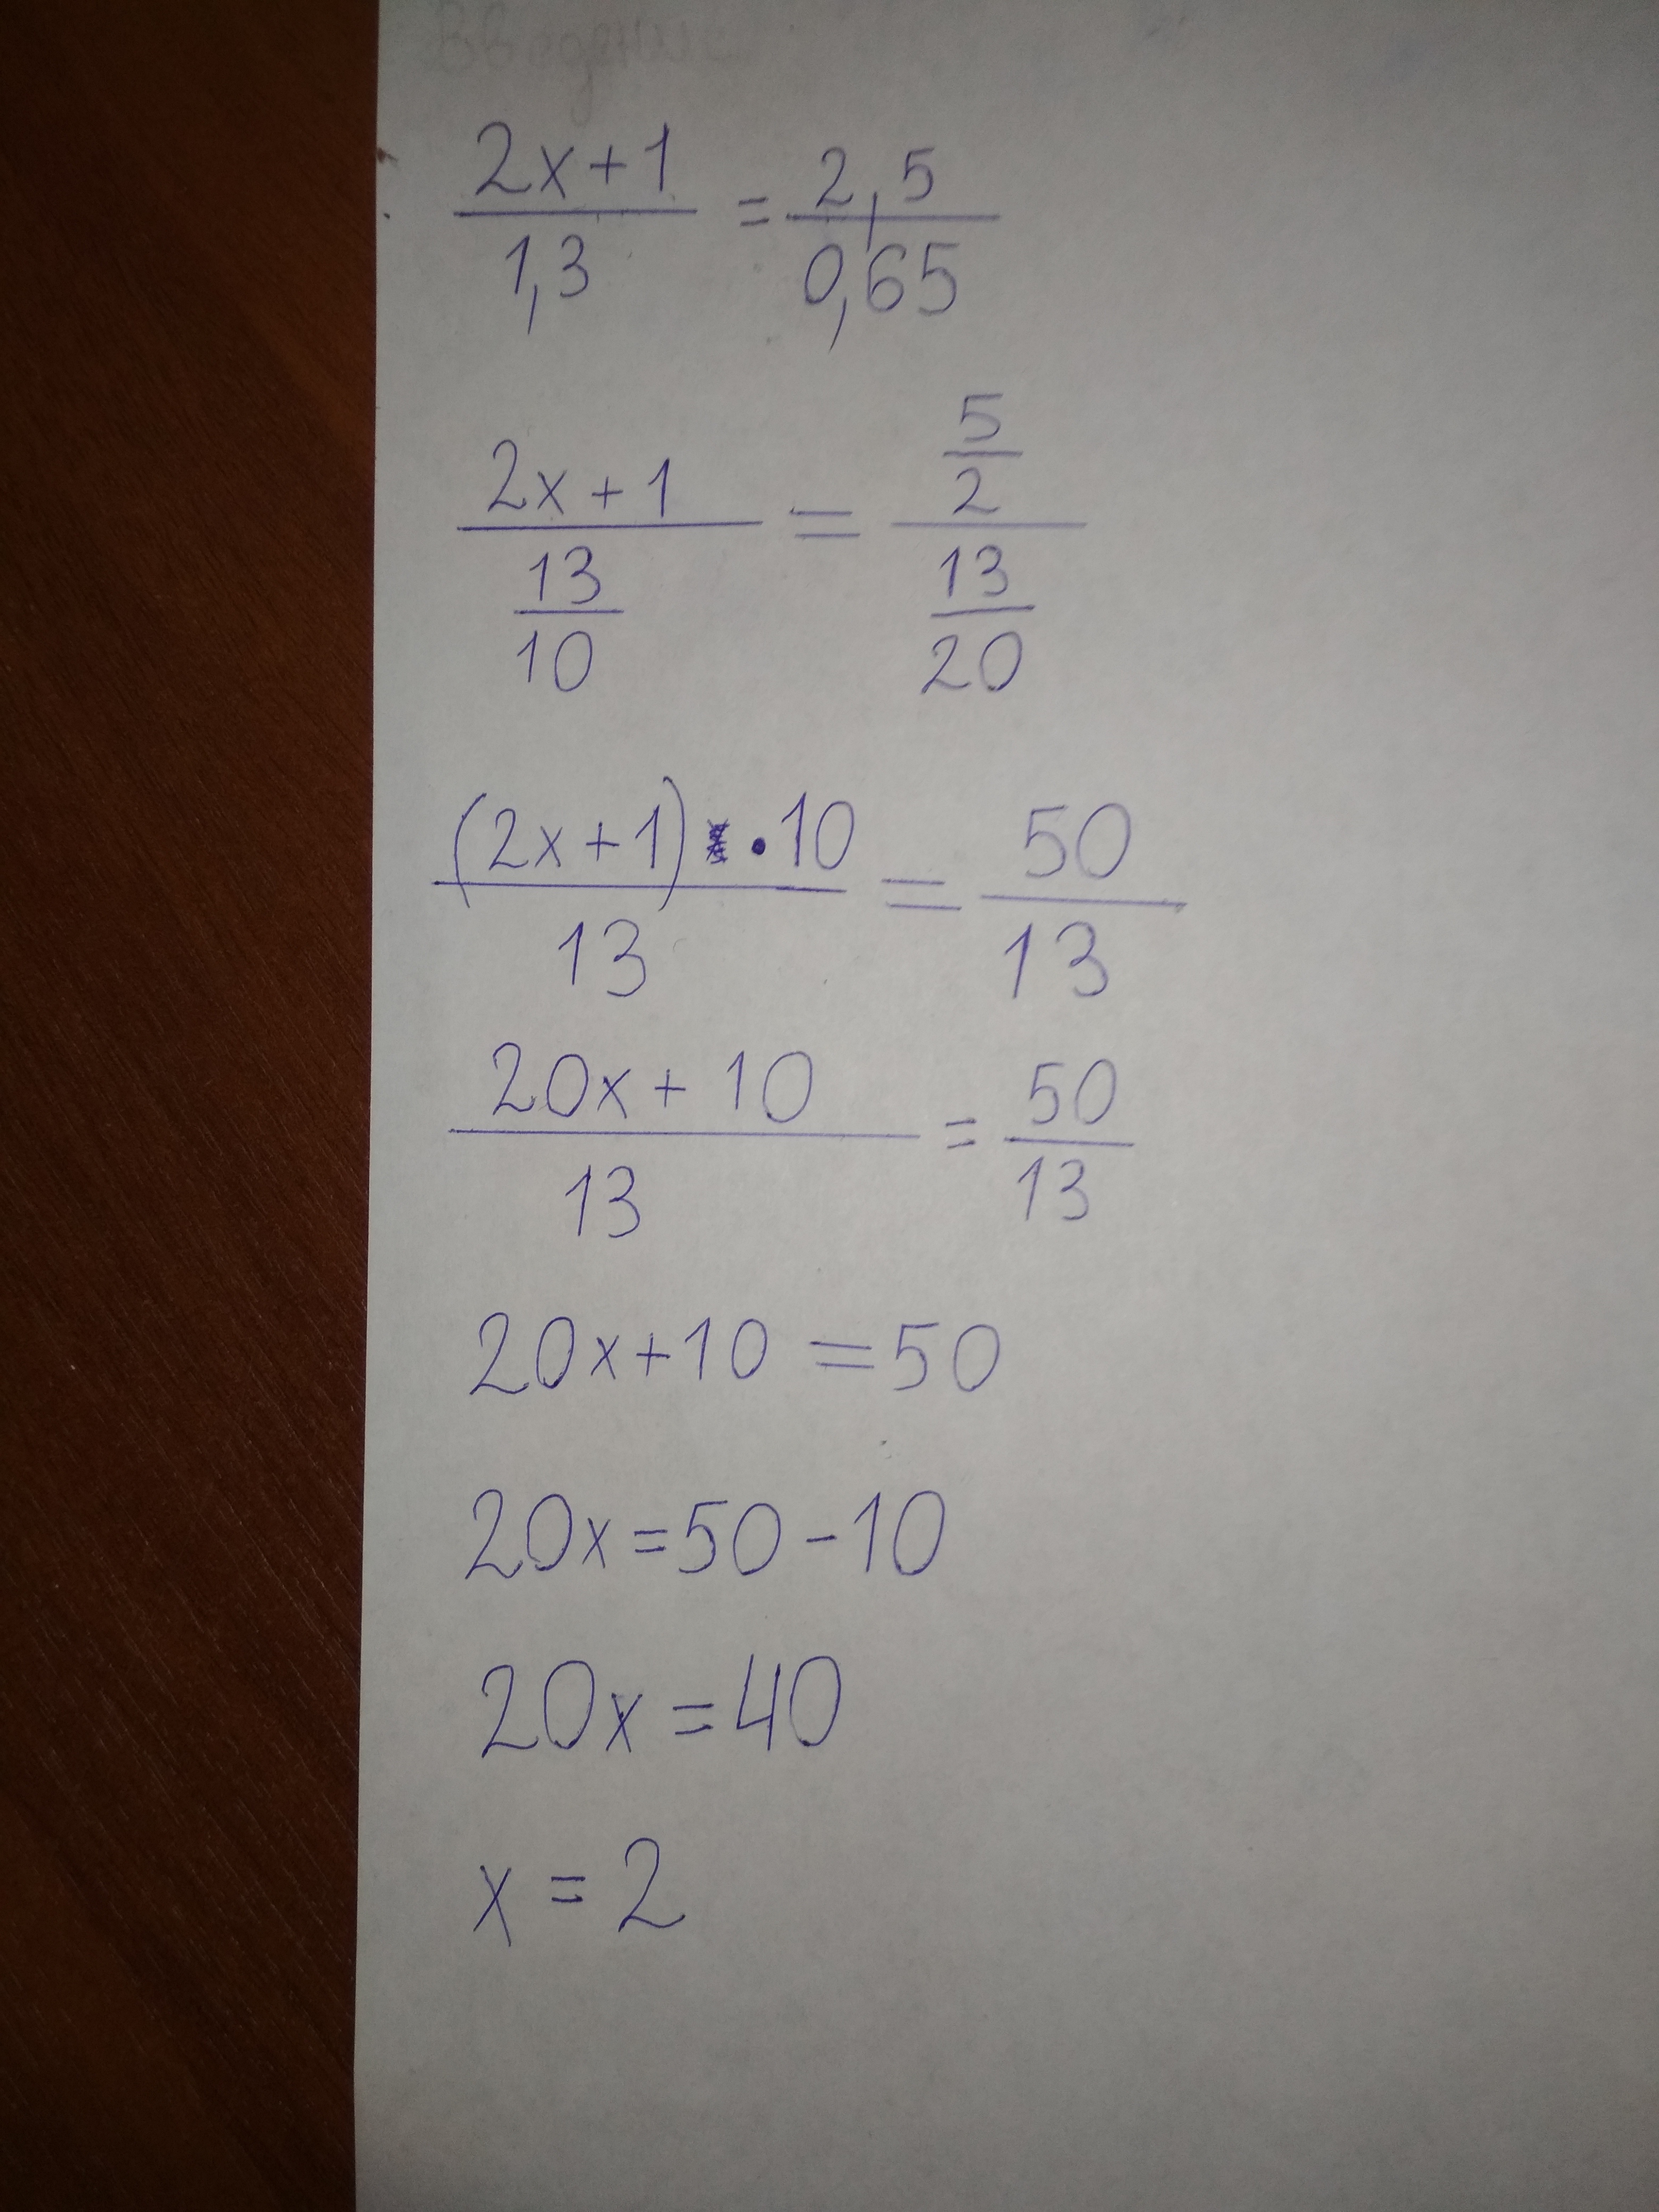 Введение
2x+1 / 1,3 = 2,5 / 0,65
2x+1 / 13/10 = 5/2 / 13/20
(2x+1) · 10 / 13 = 50 / 13
20x+10 / 13 = 50 / 13
20x+10=50
20x=50-10
20x=40
x=2